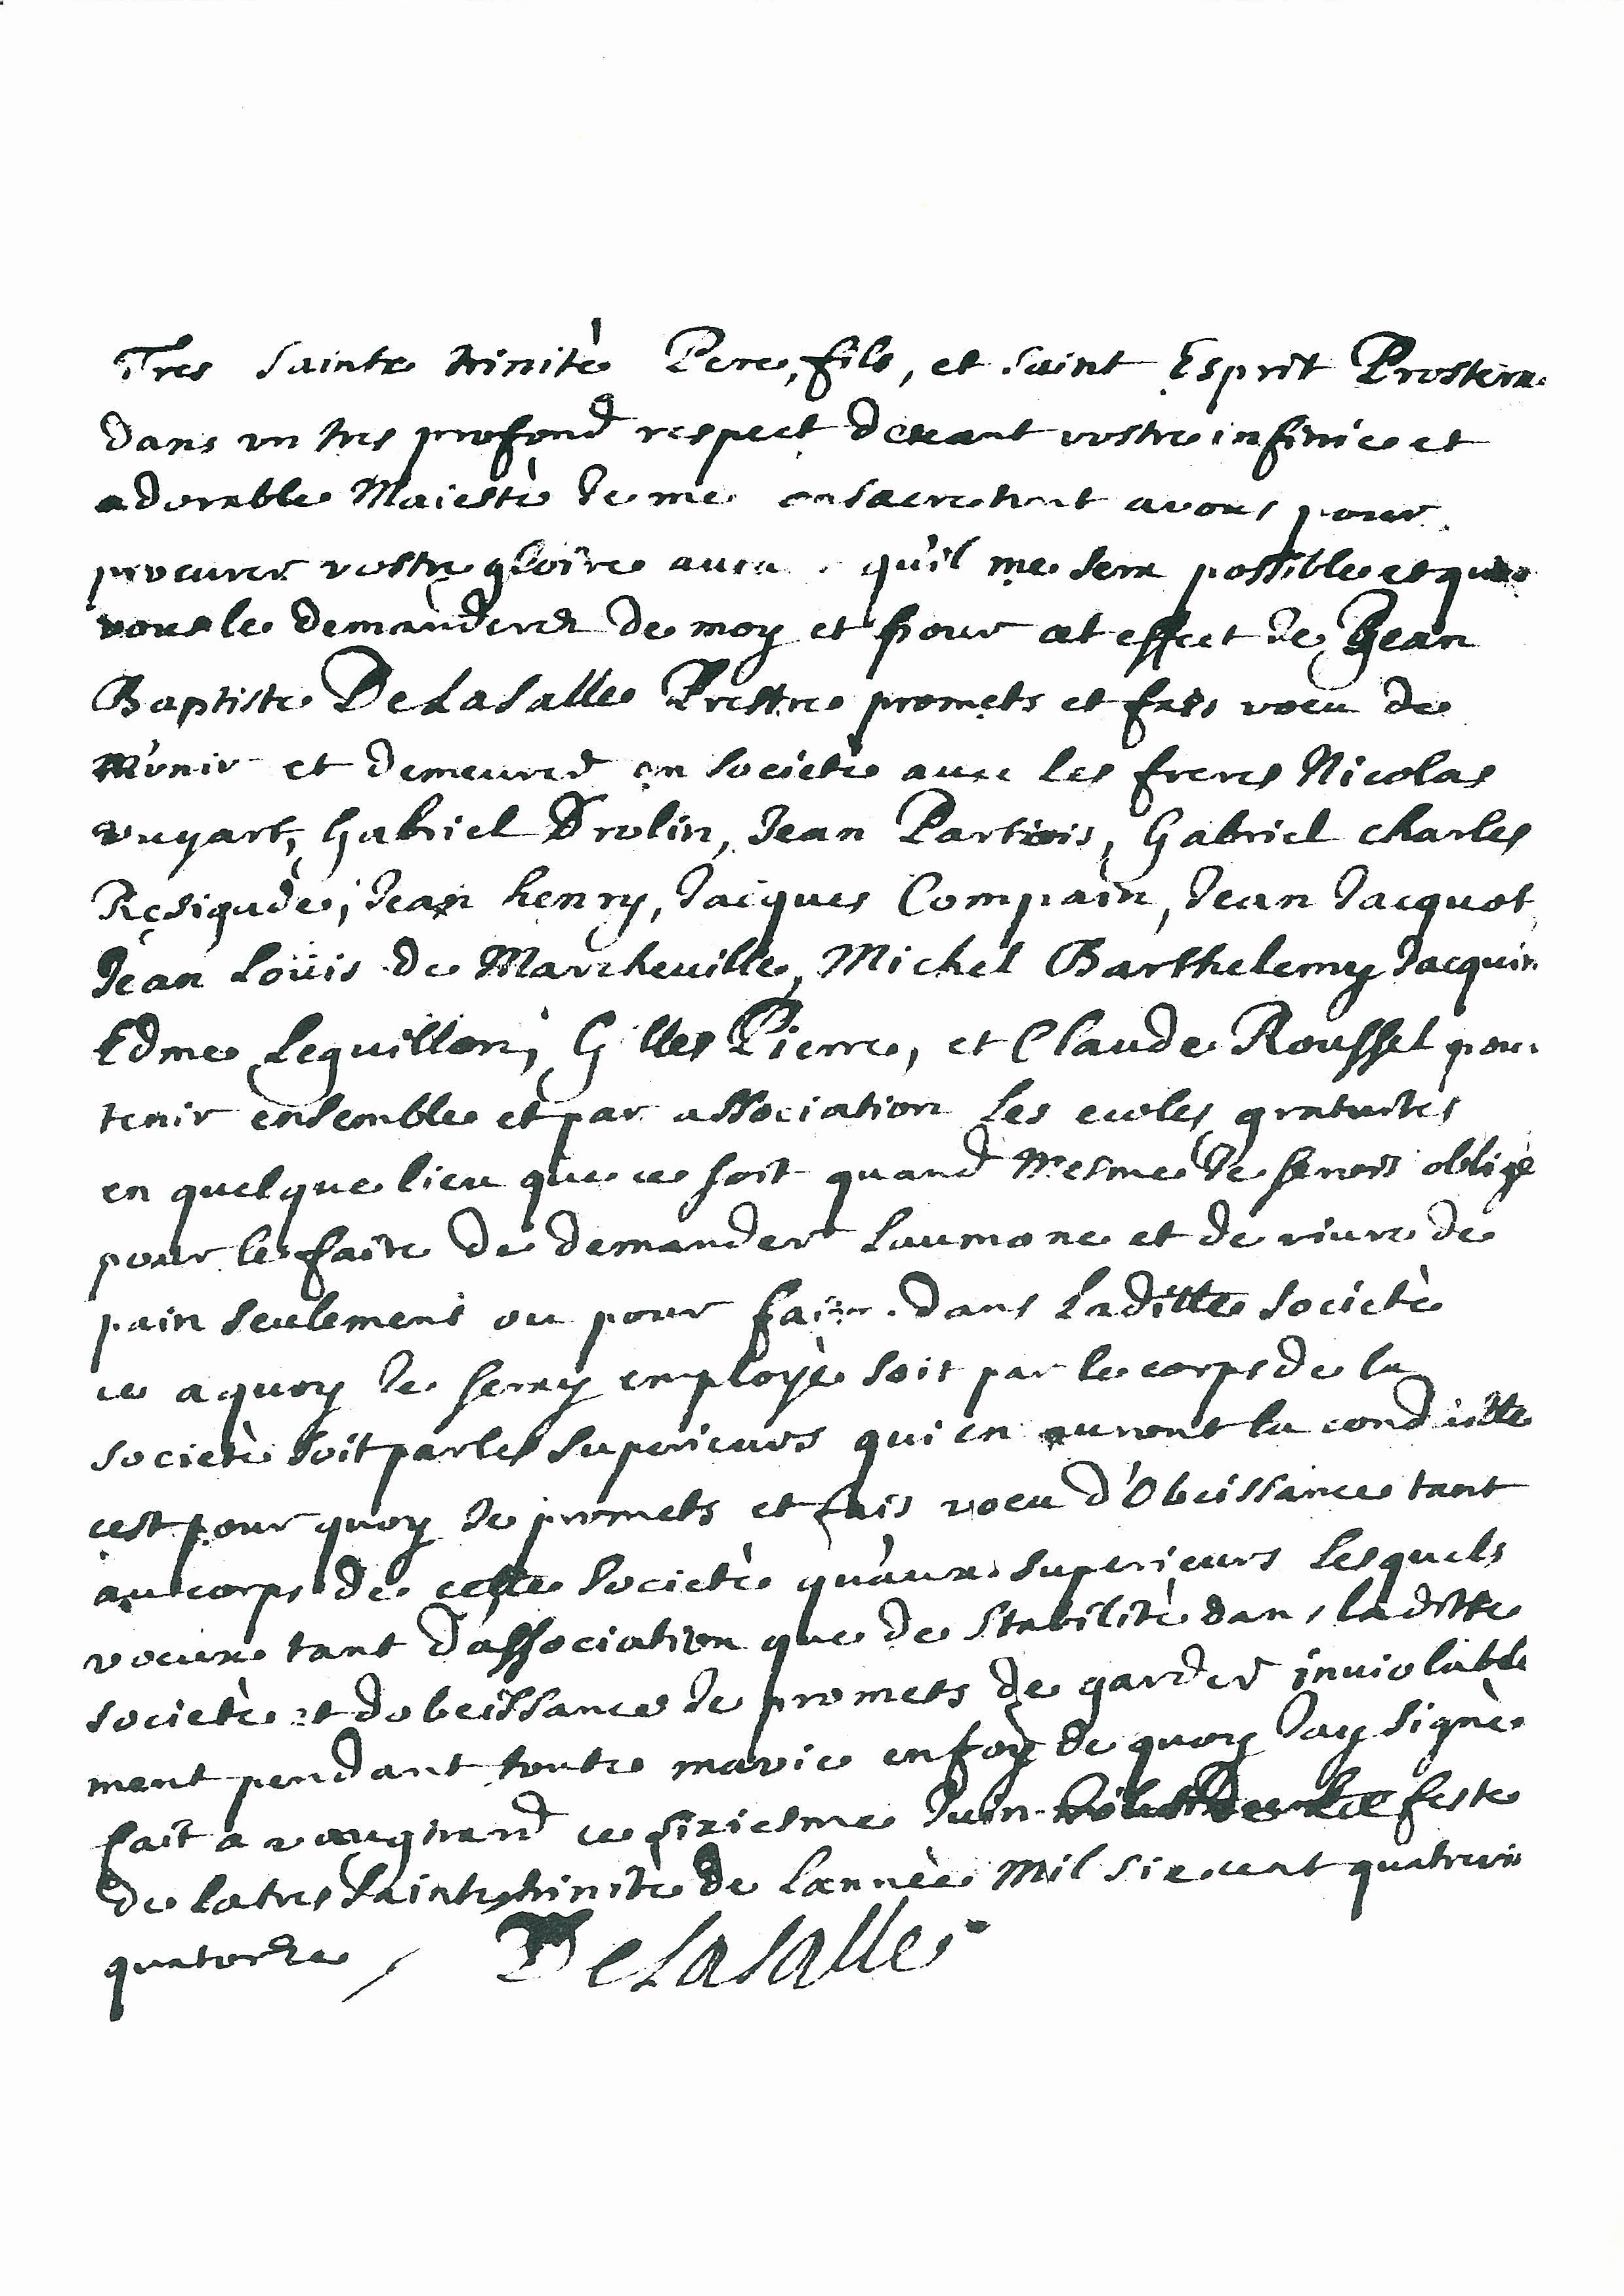 Tres Sainte trinité Pere, fils, et Saint Esprit Prostern
dans vn tres profond respect deuant vostre infinie et
adorable Maiesté Je me consacre tout a vous pour
procurer vostre gloire autant qu'il me sera possible et que
vous le demanderez de moy et pour cet effect Je Jean
Baptiste De La Salle Prestre promets et fais voeu de
M'vnir et demeurer en Societé auec les freres Nicolas
vuyart, Gabriel Drolin, Jean Partiois, Gabriel charles
Resigade, Jean henry, Jacques Compain, Jean Jacquot,
Jean Loüis de Marcheuille, Michel Barthelemy Jacquin
Edme Leguillon, Gilles Pierre, et Claude Roussel pour
tenir ensemble et par association les ecoles gratuites
en quelque lieu que ce soit quand Mesme Je serois obligé
pour le faire de demander Laumone et de viure de
pain seulement ou pour faire dans Laditte Societé
ce a quoy Je seray employé soit par le corps de la
societé soit par les superieurs qui en auront la conduitte
cest pour quoy Je promets et fais voeu d'Obeissance tant
au corps de cette Societé qu'aux superieurs Lesquels
voeux tant dassociation que de Stabilité dans laditte
societé et dobeissance Je promets de garder inuiolable
ment pendant toute ma vie en foy de quoy Jay signé
fait a vaugirard ce sixiesme Juin feste
de la tres Sainte trinité de Lannée Mil six cent quatrevin
quatorze, De La Salle